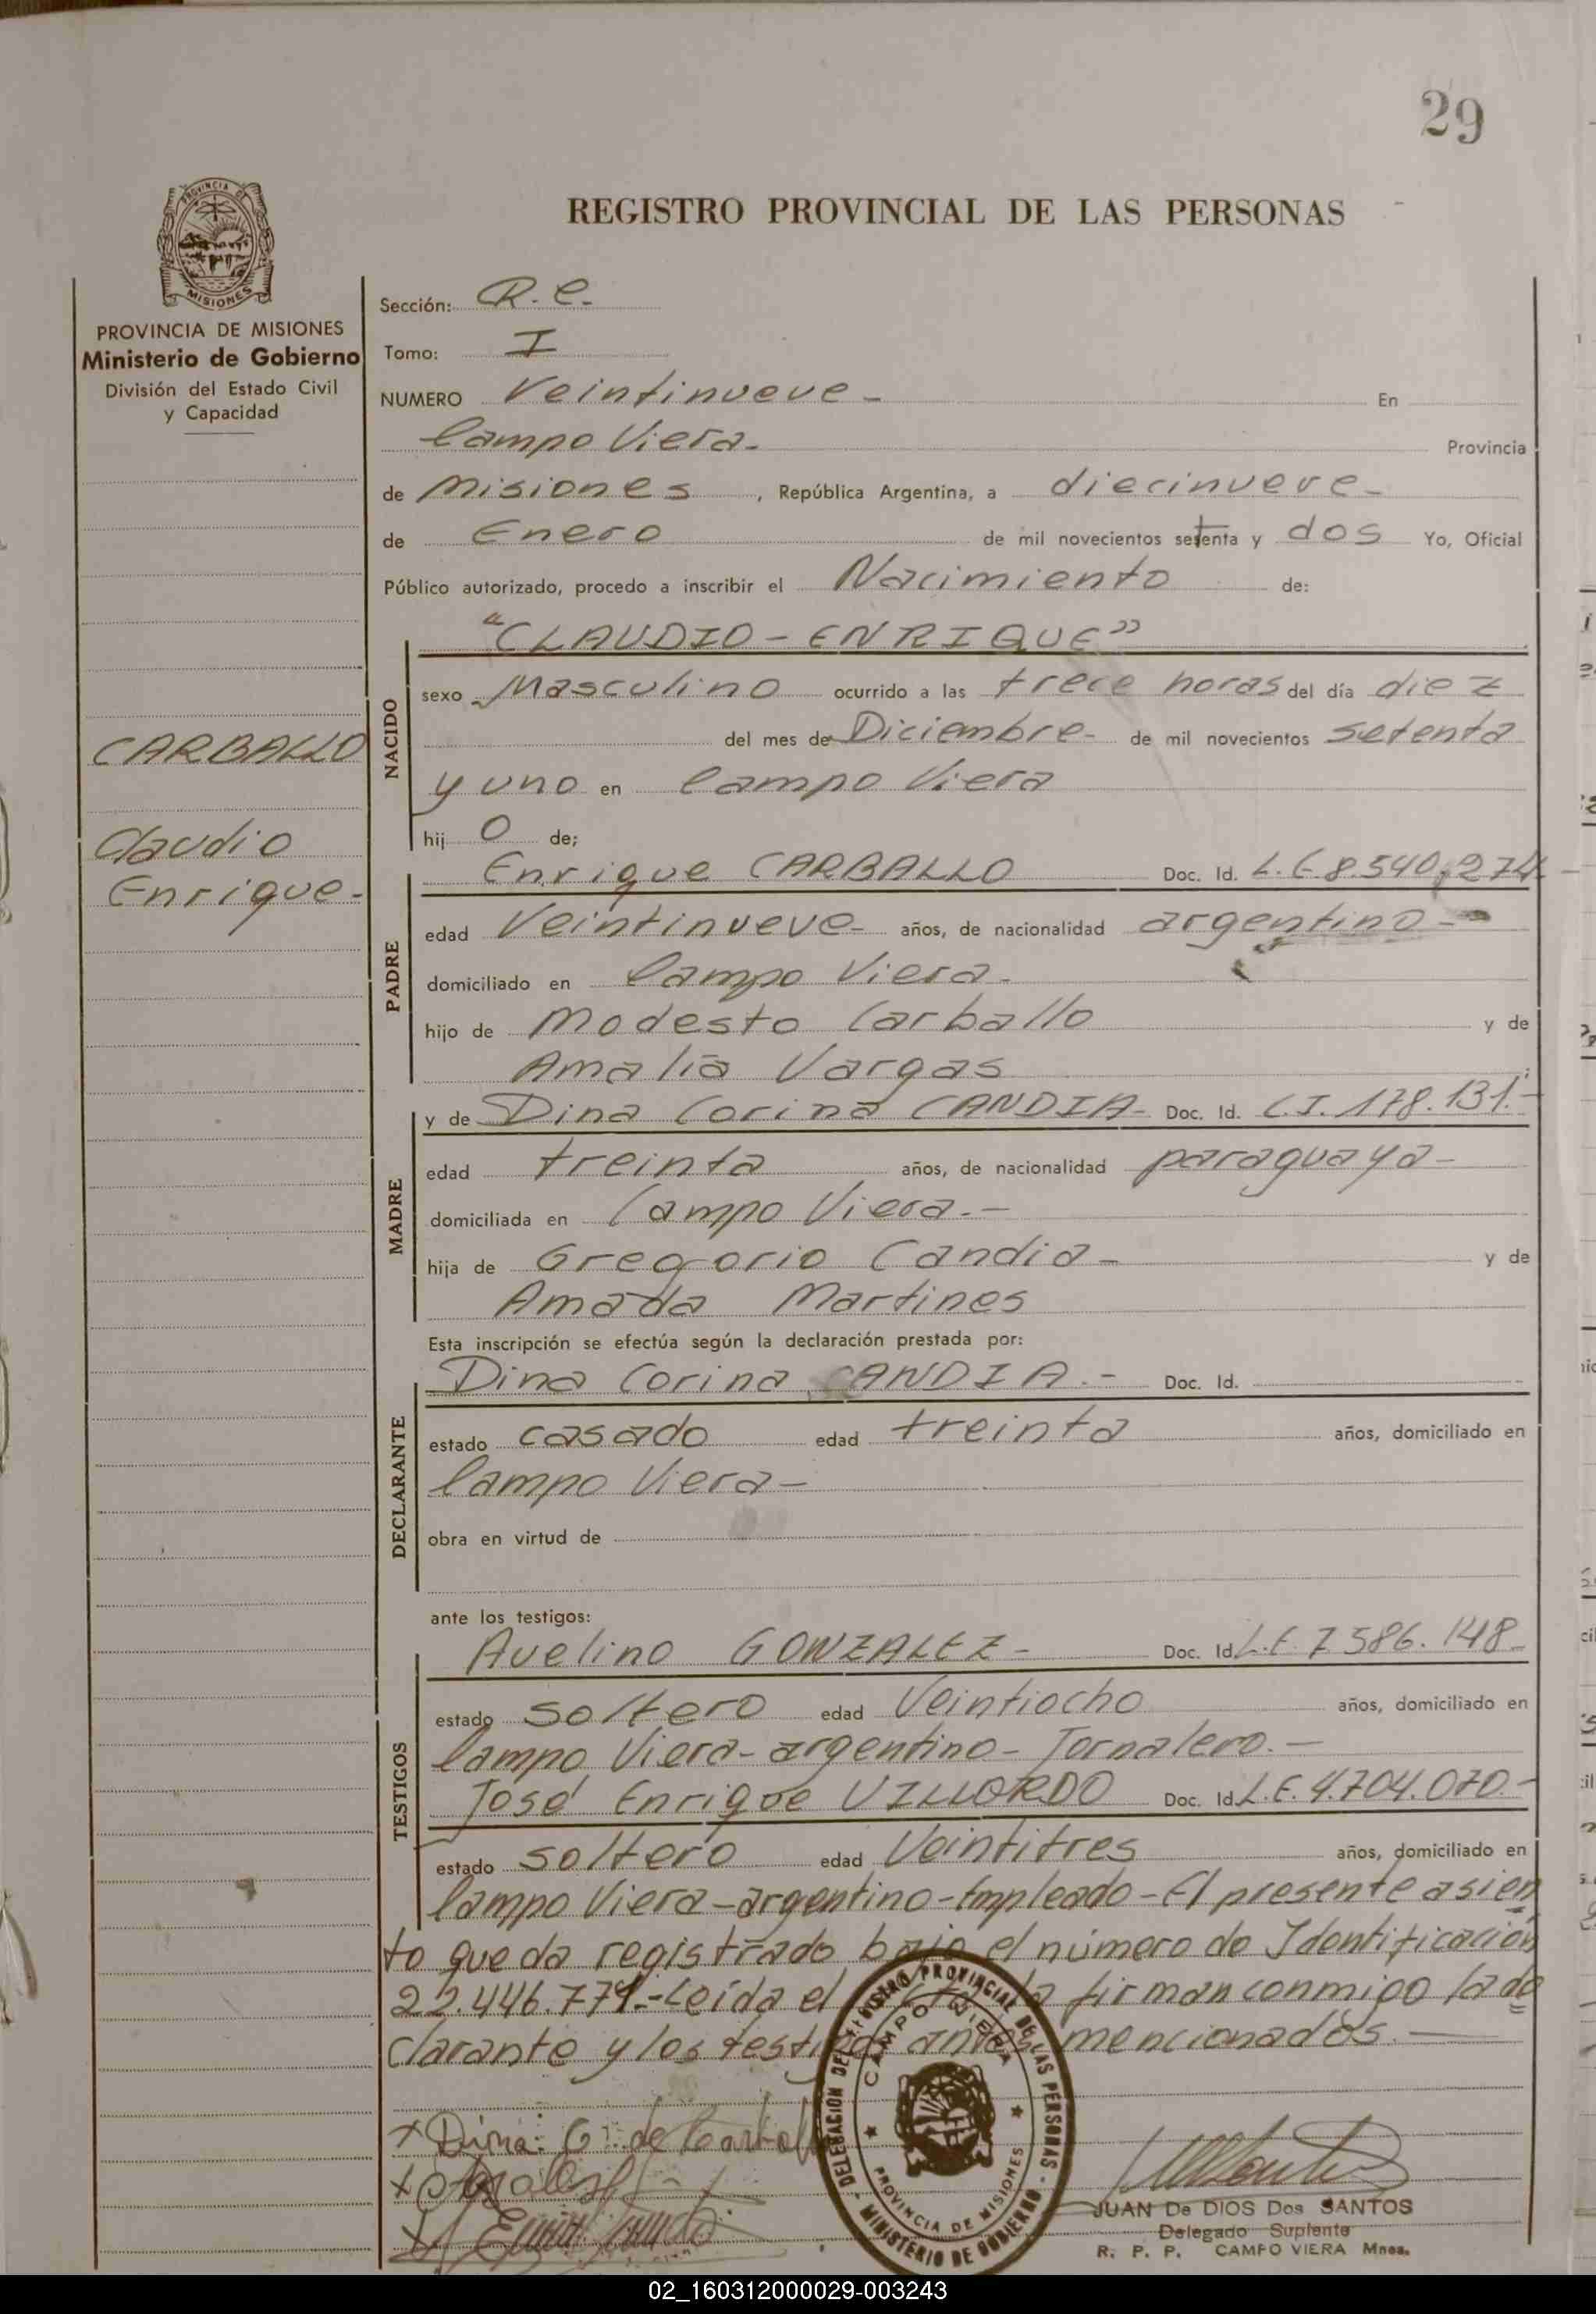 29
REGISTRO PROVINCIAL DE LAS PERSONAS
PROVINCIA DE
MISIONES
PROVINCIA DE MISIONES
Ministerio de Gobierno
División del Estado Civil
y Capacidad
CARBALLO
Claudio
Enrique-
Sección: R.C.
Tomo: I
NUMERO Veintinueve- En
Campo Viera. Provincia
de Misiones, República Argentina, a diecinueve-
de Enero de mil novecientos setenta y dos Yo, Oficial
Público autorizado, procedo a inscribir el Nacimiento de:
"CLAUDIO-ENRIQUE"
NACIDO
sexo Masculino ocurrido a las trece horas del día diez
del mes de Diciembre- de mil novecientos setenta
y uno en Campo Viera
hij o de;
PADRE
Enrique CARBALLO Doc. Id. L.E.8.540.274
edad Veintinueve- años, de nacionalidad argentino-
domiciliado en Campo Viera.
hijo de Modesto Carballo y de
Amalia Vargas
MADRE
y de Dina Corina CANDIA- Doc. Id. C.I. 178.131.-
edad treinta años, de nacionalidad paraguaya-
domiciliada en Campo Viera.-
hija de Gregorio Candia- y de
Amada Martines
Esta inscripción se efectúa según la declaración prestada por:
DECLARANTE
Dina Corina CANDIA.- Doc. Id.
estado casado edad treinta años, domiciliado en
Campo Viera-
obra en virtud de
ante los testigos:
TESTIGOS
Avelino GONZALEZ- Doc. Id L.E.7.586.148-
estado soltero edad Veintiocho años, domiciliado en
Campo Viera-argentino-Jornalero.-
José Enrique VILLORDO Doc. Id L.E.4.704.070.-
estado soltero edad Veintitres años, domiciliado en
Campo Viera-argentino-Empleado-El presente asien
to queda registrado bajo el número de Identificación
22.446.779.-Leída el la firman conmigo la de
clarante y los testigos antes mencionados.-
x Dina C. de Carball
DELEGACION DEL REGISTRO PROVINCIAL DE LAS PERSONAS - MINISTERIO DE GOBIERNO
CAMPO VIERA
PROVINCIA DE MISIONES
JUAN De DIOS Dos SANTOS
Delegado Suplente
R. P. P. CAMPO VIERA Mnes.
02_160312000029-003243